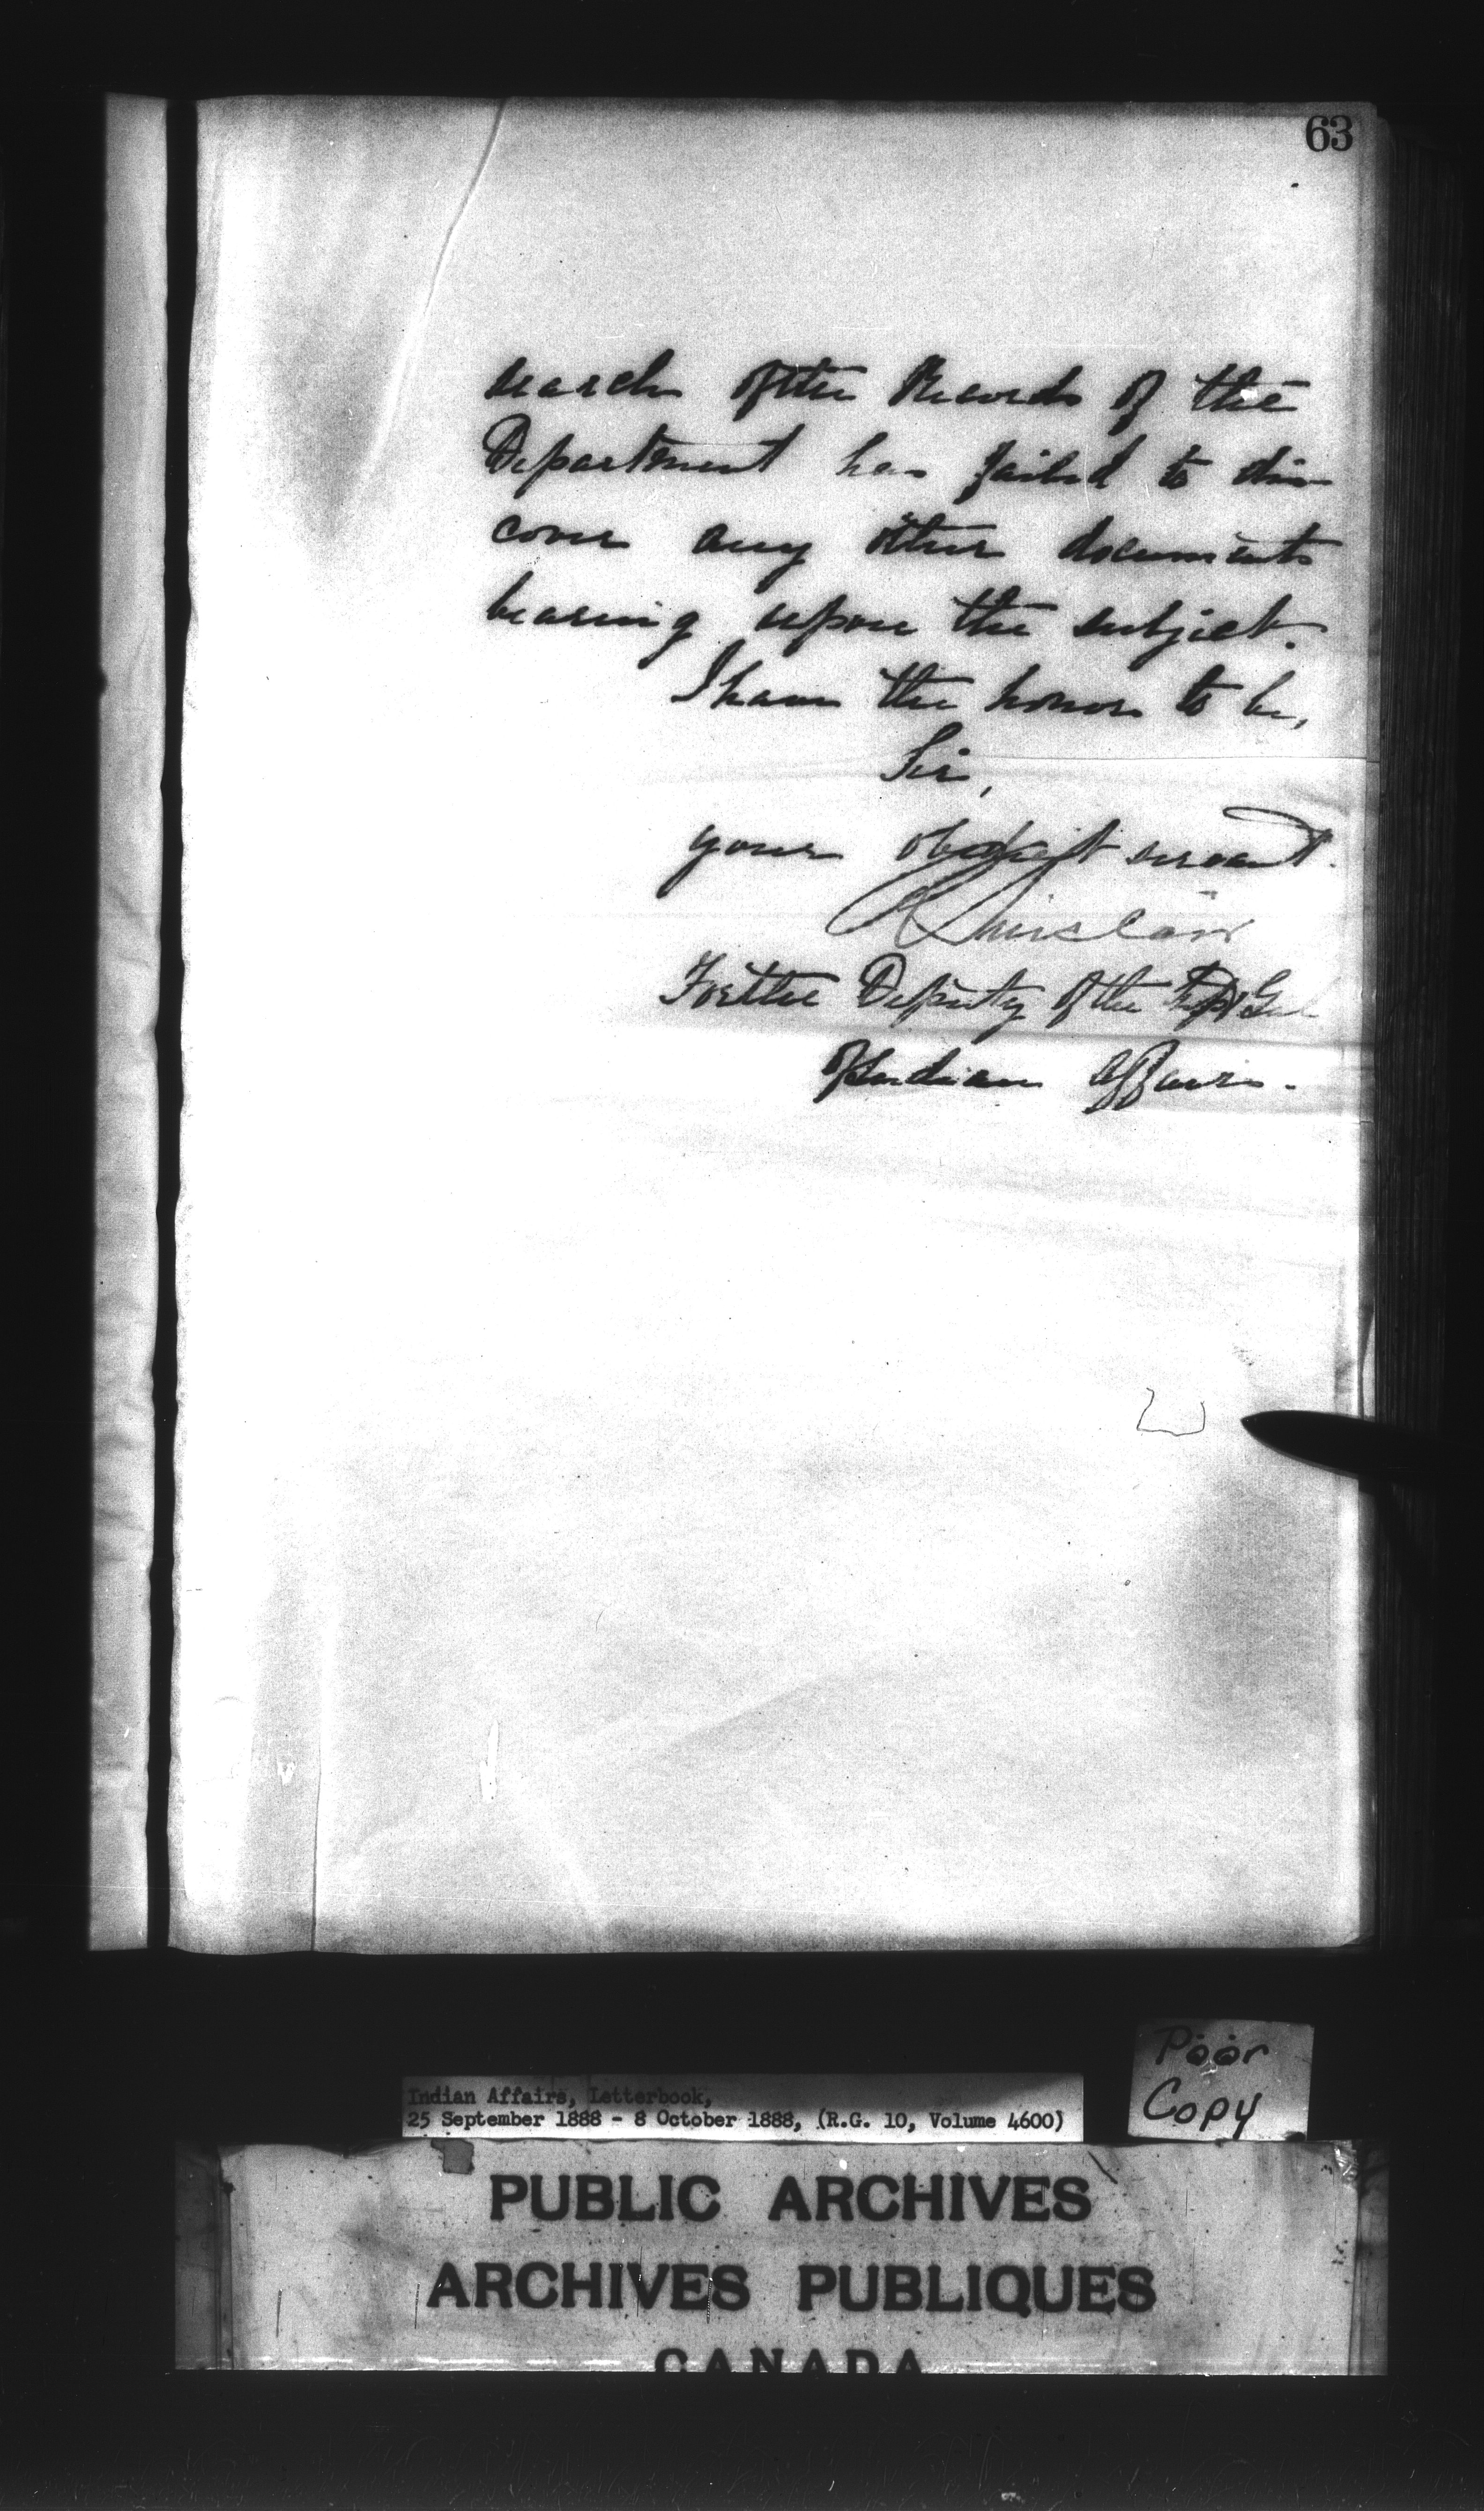 63
search of the Records of the
Department has failed to dis-
cover any other documents
bearing upon the subject.
I have the honor to be,
Sir,
your obedient servant.
R Sinclair
For the Deputy of the Supt Genl
of Indian Affairs.
Poor
Copy
Indian Affairs, Letterbook,
25 September 1888 - 8 October 1888, (R.G. 10, Volume 4600)
PUBLIC ARCHIVES
ARCHIVES PUBLIQUES
CANADA